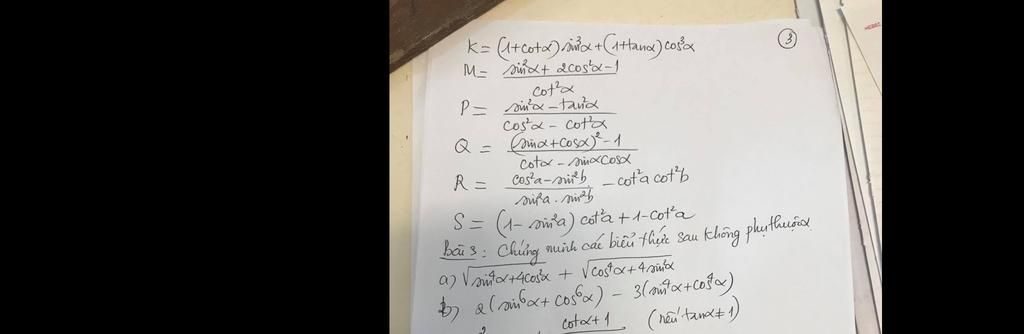 ③
K = (1+cotα) sin³α + (1+tanα) cos³α
M = (sin²α + 2cos²α – 1) / cot²α
P = (sin²α – tan²α) / (cos²α – cot²α)
Q = ((sinα + cosα)² – 1) / (cotα – sinαcosα)
R = (cos²a – sin²b) / (sin²a . sin²b) – cot²a cot²b
S = (1 – sin²a) cot²a + 1 – cot²a
Bài 3: Chứng minh các biểu thức sau không phụ thuộc α
a) √(sin⁴α + 4cos²α) + √(cos⁴α + 4sin²α)
b) 2(sin⁶α + cos⁶α) – 3(sin⁴α + cos⁴α)
cotα + 1 (nếu tanα ≠ 1)